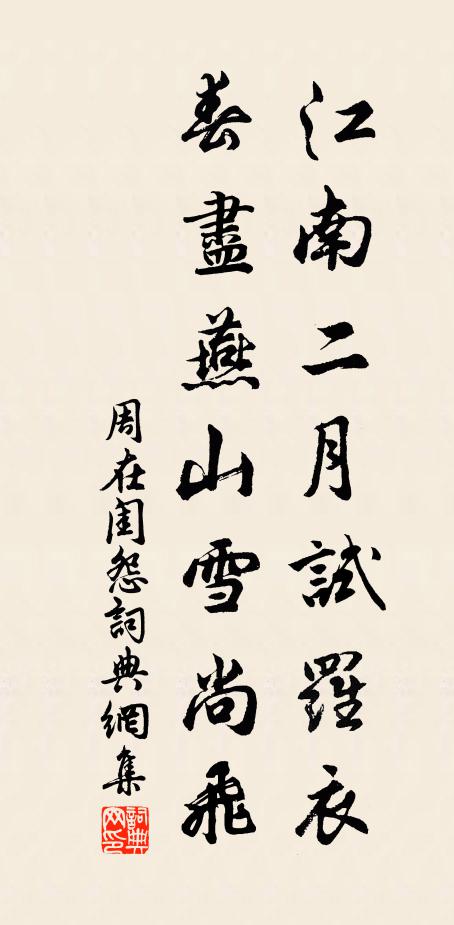 江南二月試羅衣
春盡燕山雪尚飛
周在閨怨詞典網集
詞典网印